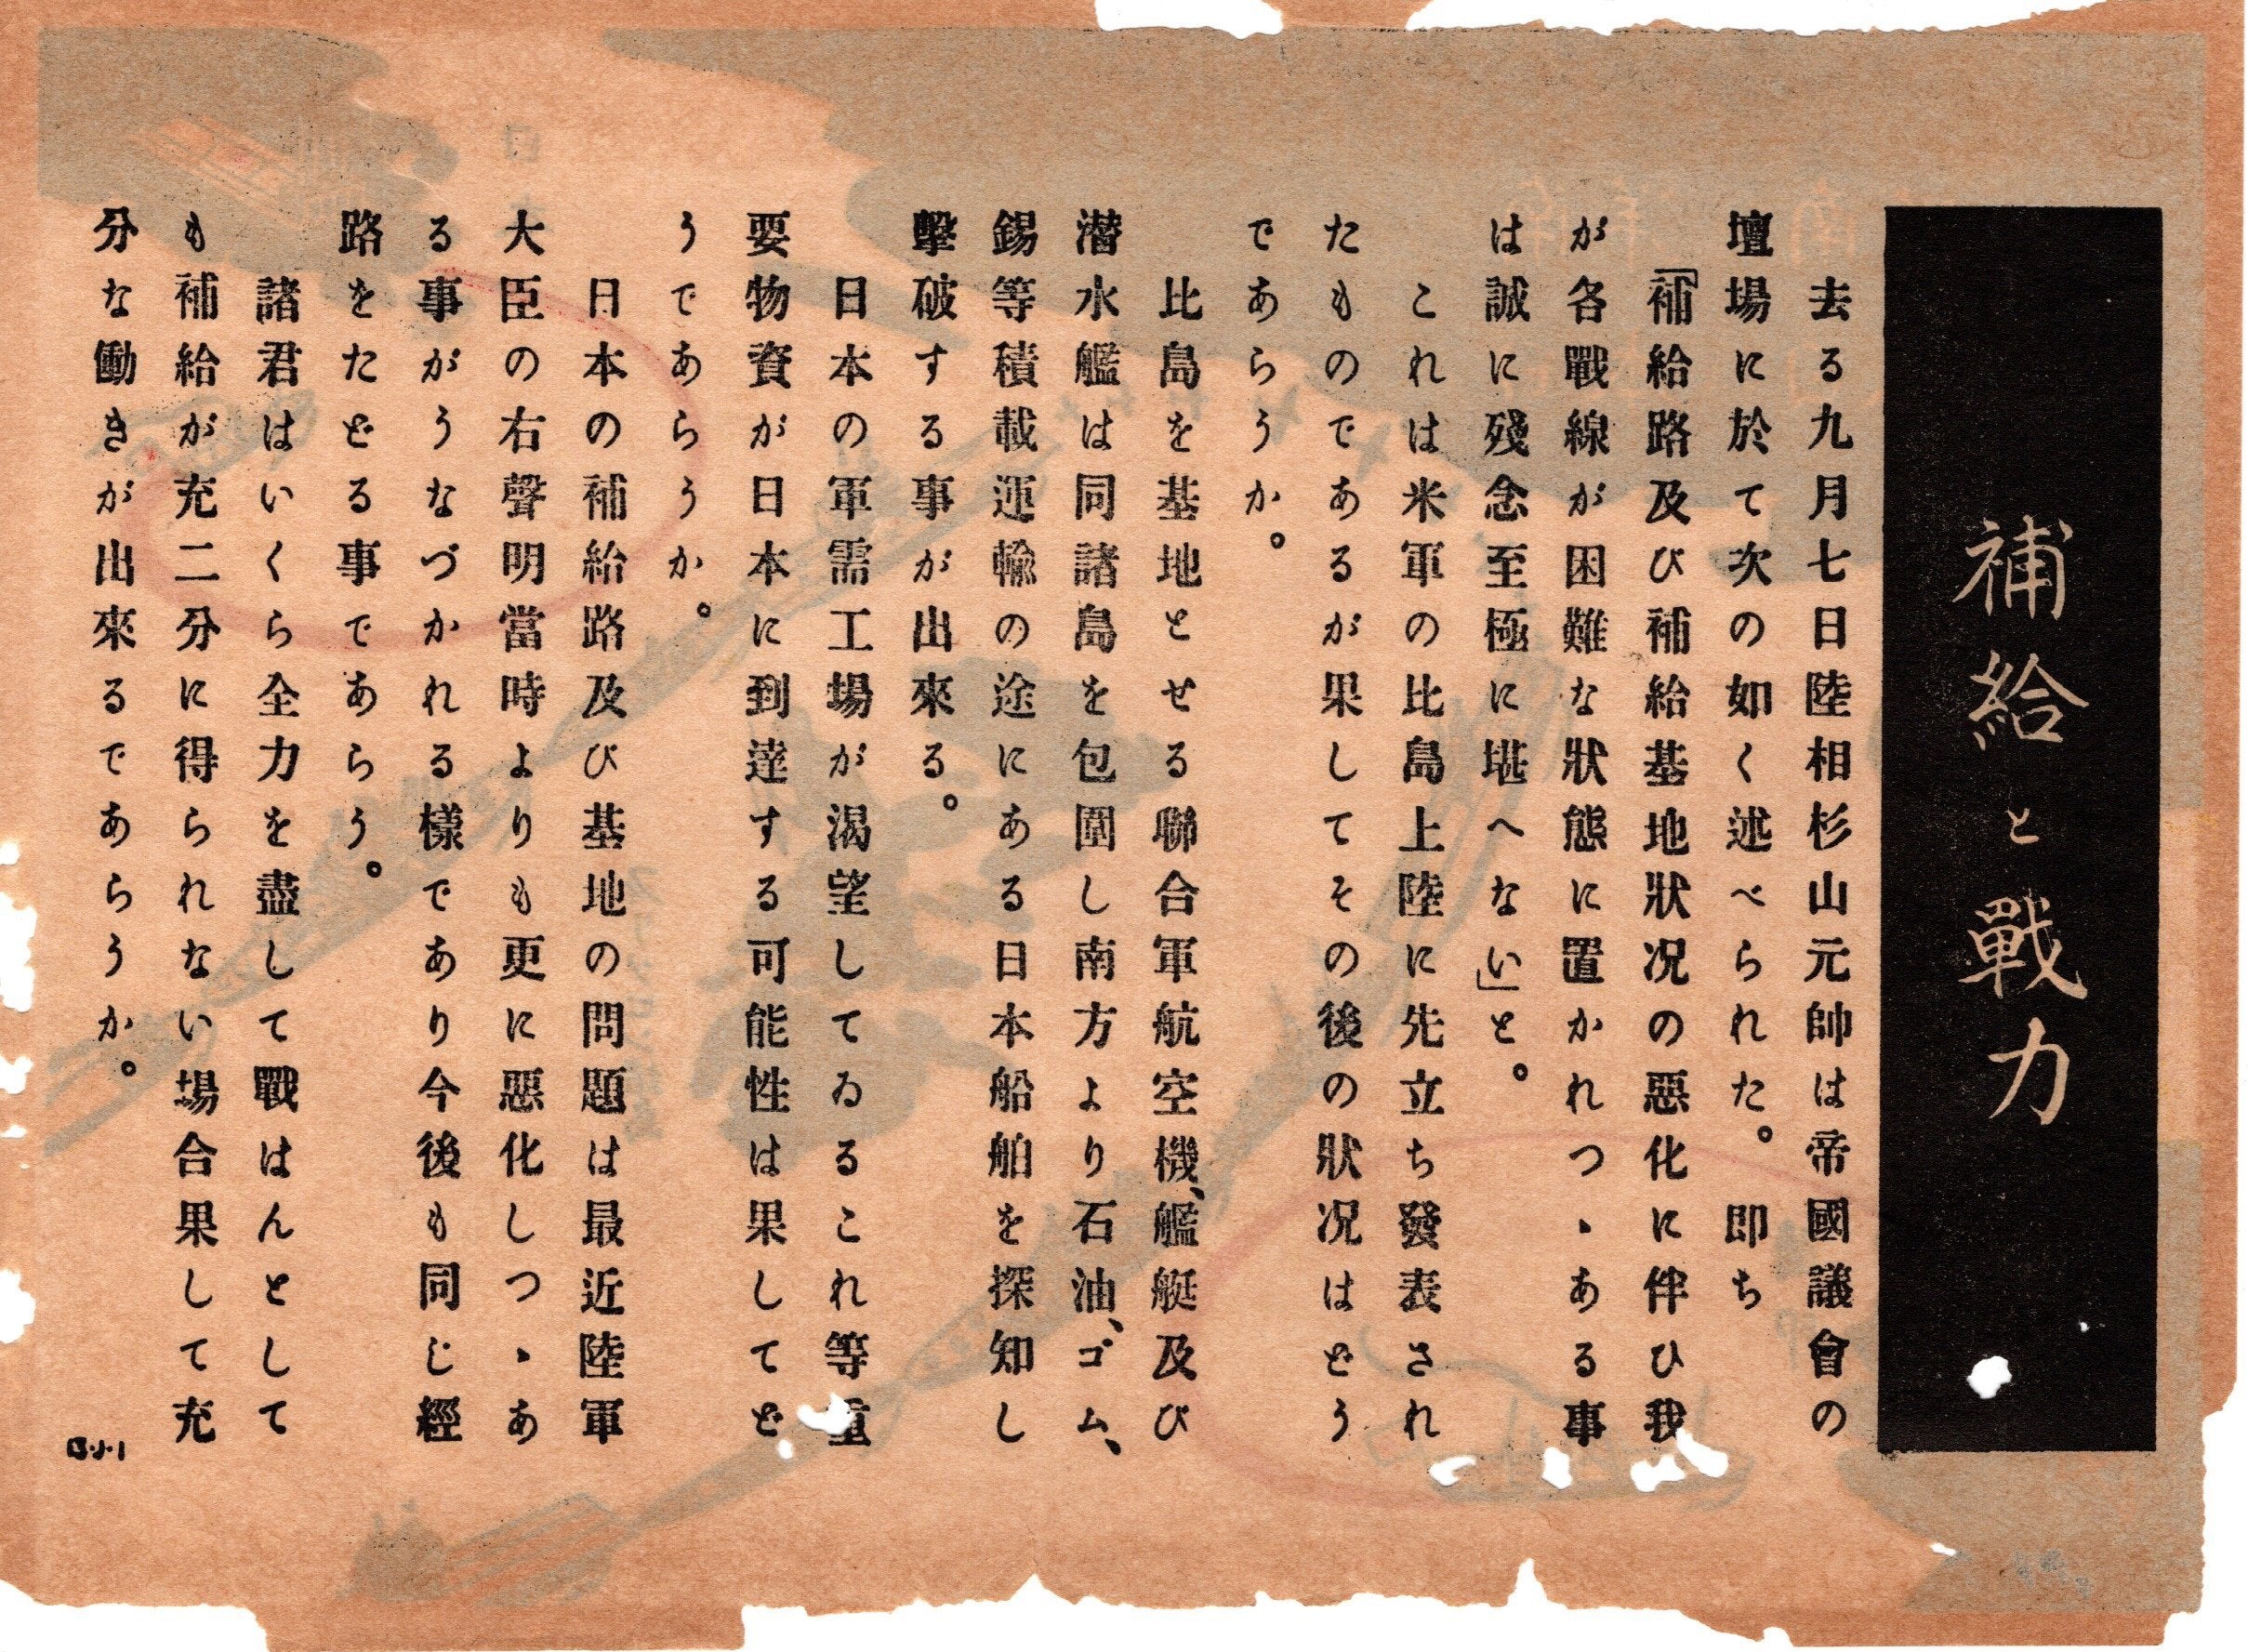 補給と戰力
去る九月七日陸相杉山元帥は帝國議會の
壇場に於て次の如く述べられた。即ち
「補給路及び補給基地狀況の惡化に伴ひ我
が各戰線が困難な狀態に置かれつゝある事
は誠に殘念至極に堪へない」と。
これは米軍の比島上陸に先立ち發表され
たものであるが果してその後の狀況はどう
であらうか。
比島を基地とせる聯合軍航空機、艦艇及び
潜水艦は同諸島を包圍し南方より石油、ゴム、
錫等積載運輸の途にある日本船舶を探知し
擊破する事が出來る。
日本の軍需工場が渴望してゐるこれ等重
要物資が日本に到達する可能性は果してど
うであらうか。
日本の補給路及び基地の問題は最近陸軍
大臣の右聲明當時よりも更に惡化しつゝあ
る事がうなづかれる樣であり今後も同じ經
路をたどる事であらう。
諸君はいくら全力を盡して戰はんとして
も補給が充二分に得られない場合果して充
分な働きが出來るであらうか。